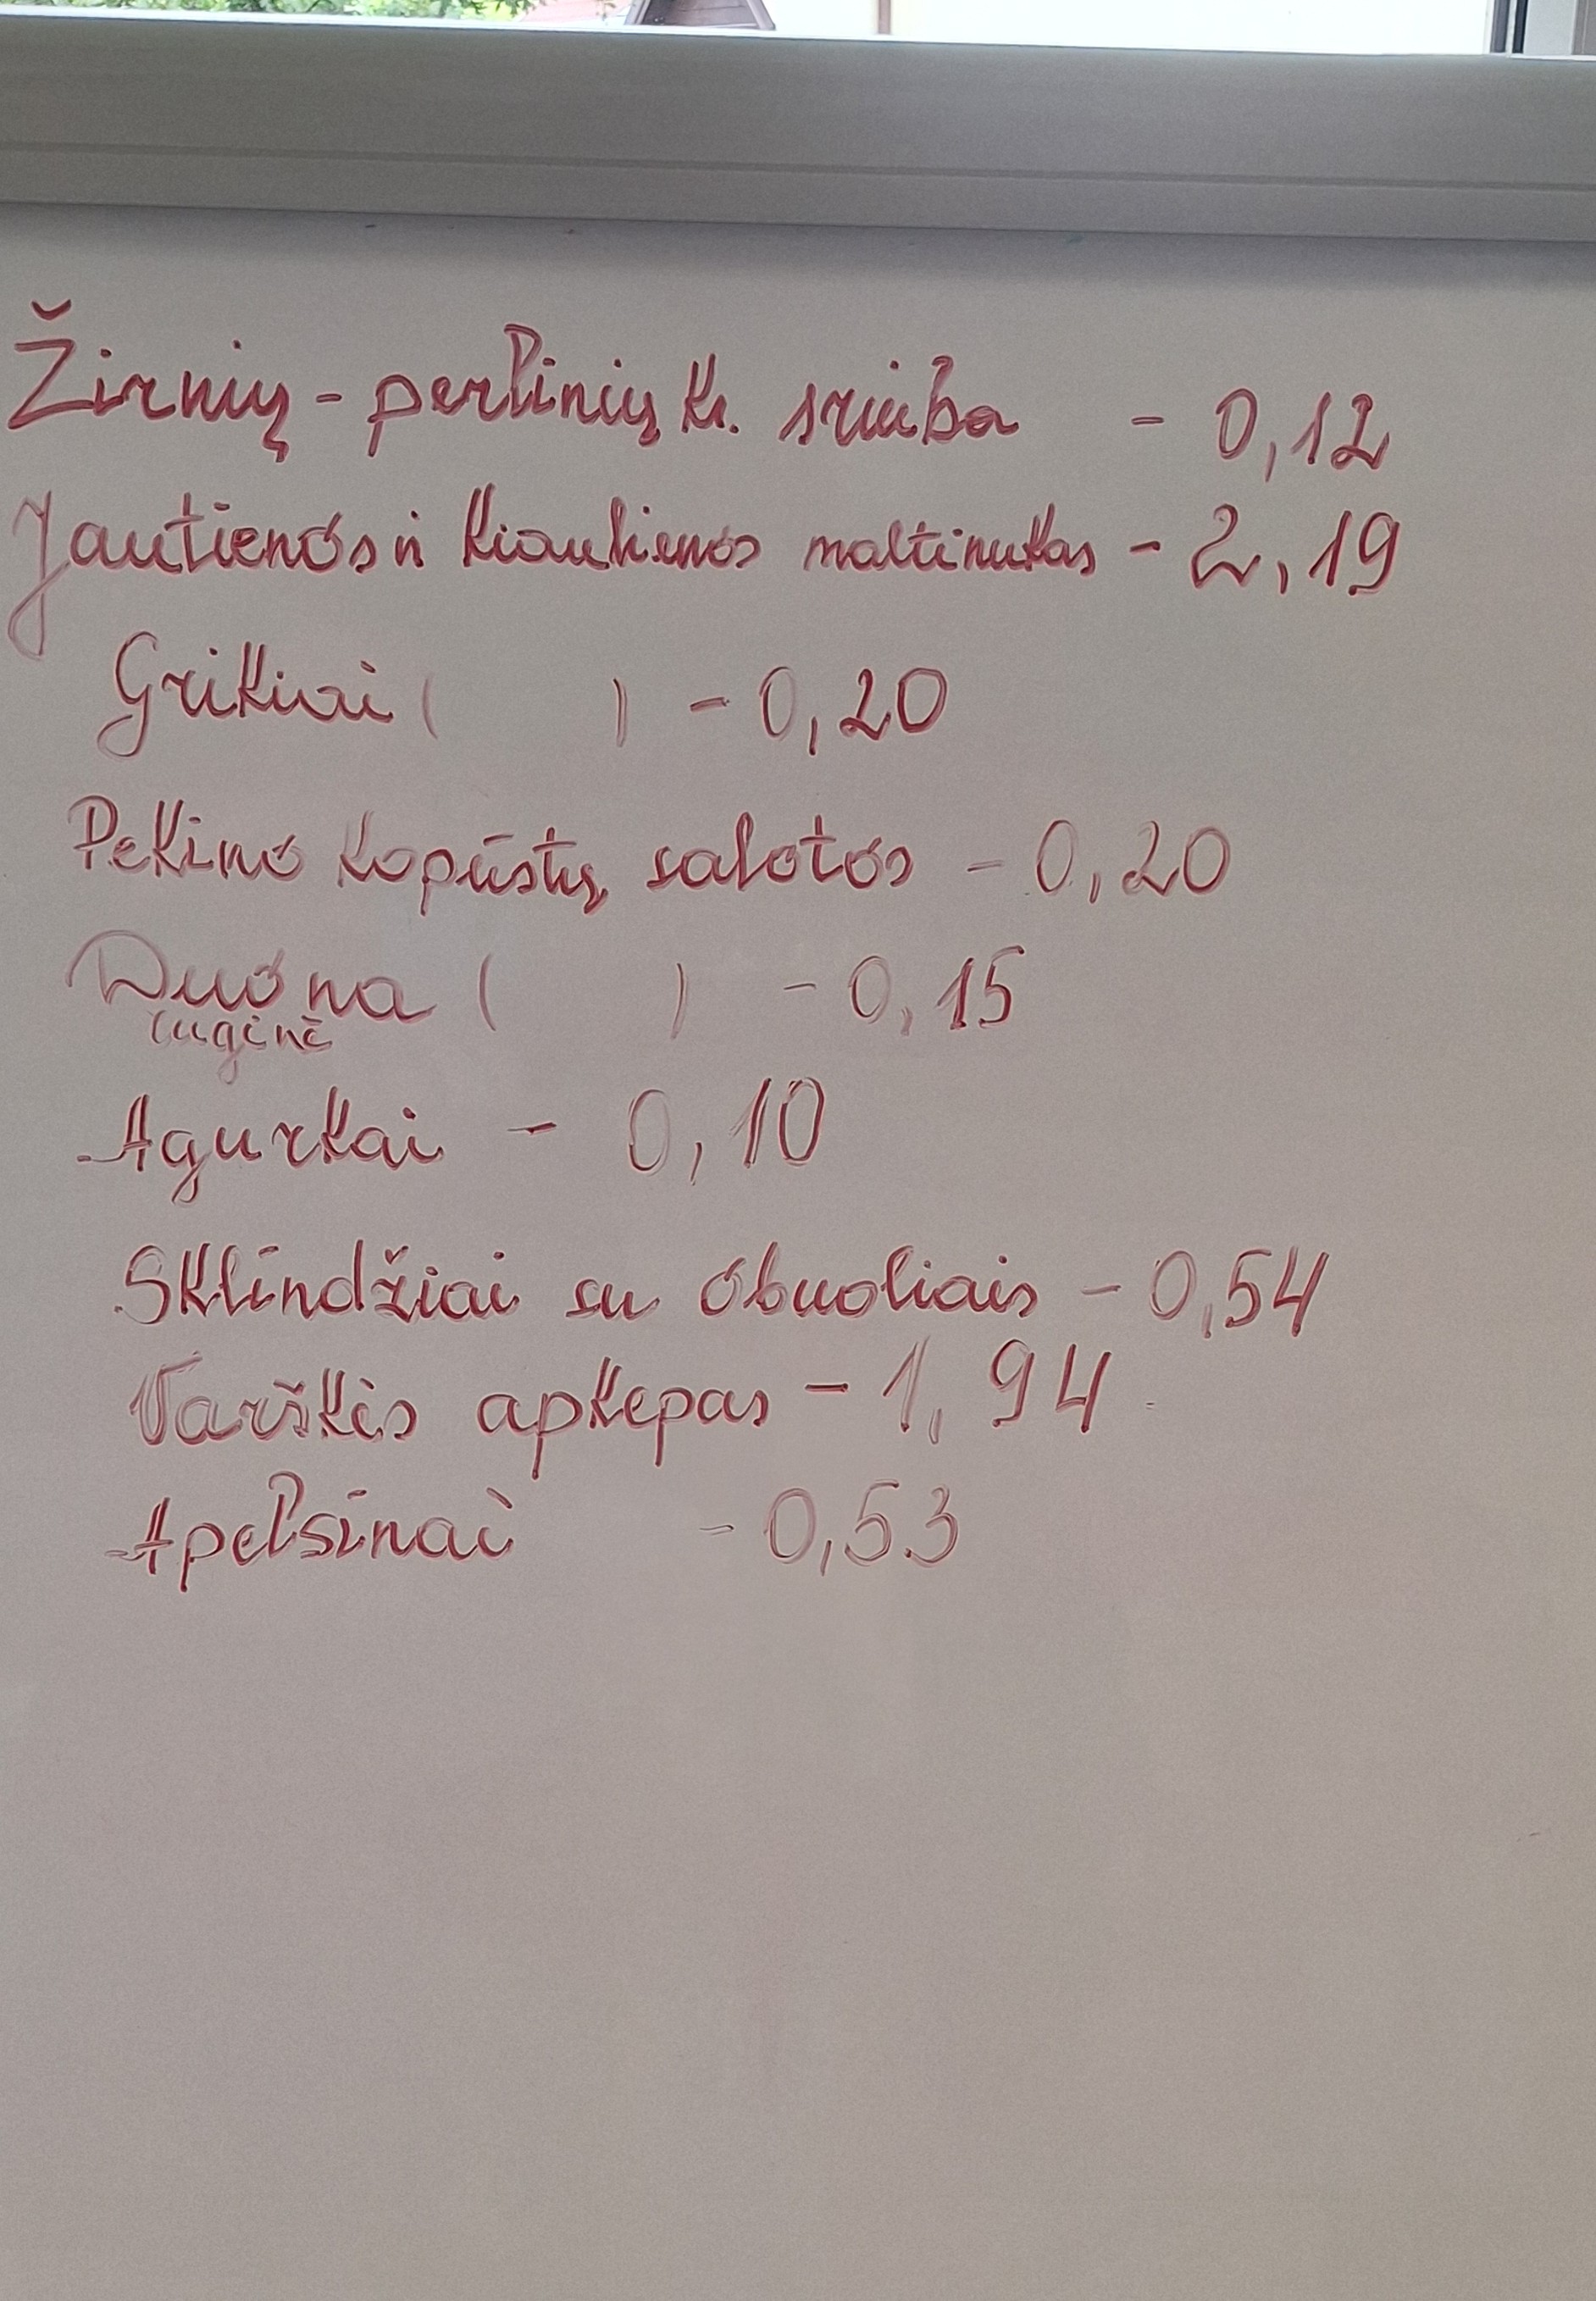 Žirnių - perlinių kr. sriuba - 0,12
Jautienos ir kiaulienos maltinukas - 2,19
Grikiai ( ) - 0,20
Pekino kopūstų salotos - 0,20
Duona ( ) - 0,15
ruginė
Agurkai - 0,10
Sklindžiai su obuoliais - 0,54
Varškės apkepas - 1,94
Apelsinai - 0,53